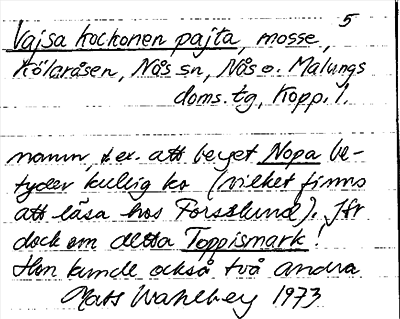 5
Vajsa kockonen pajta, mosse,
Kölaråsen, Nås sn, Nås o. Malungs
doms. tg, Kopp. l.
namn, t.ex. att berget Nopa be-
tyder kullig ko (vilket finns
att läsa hos Forsslund). Jfr
dock om detta Toppismark!
Hon kunde också två andra
Mats Wahlberg 1973